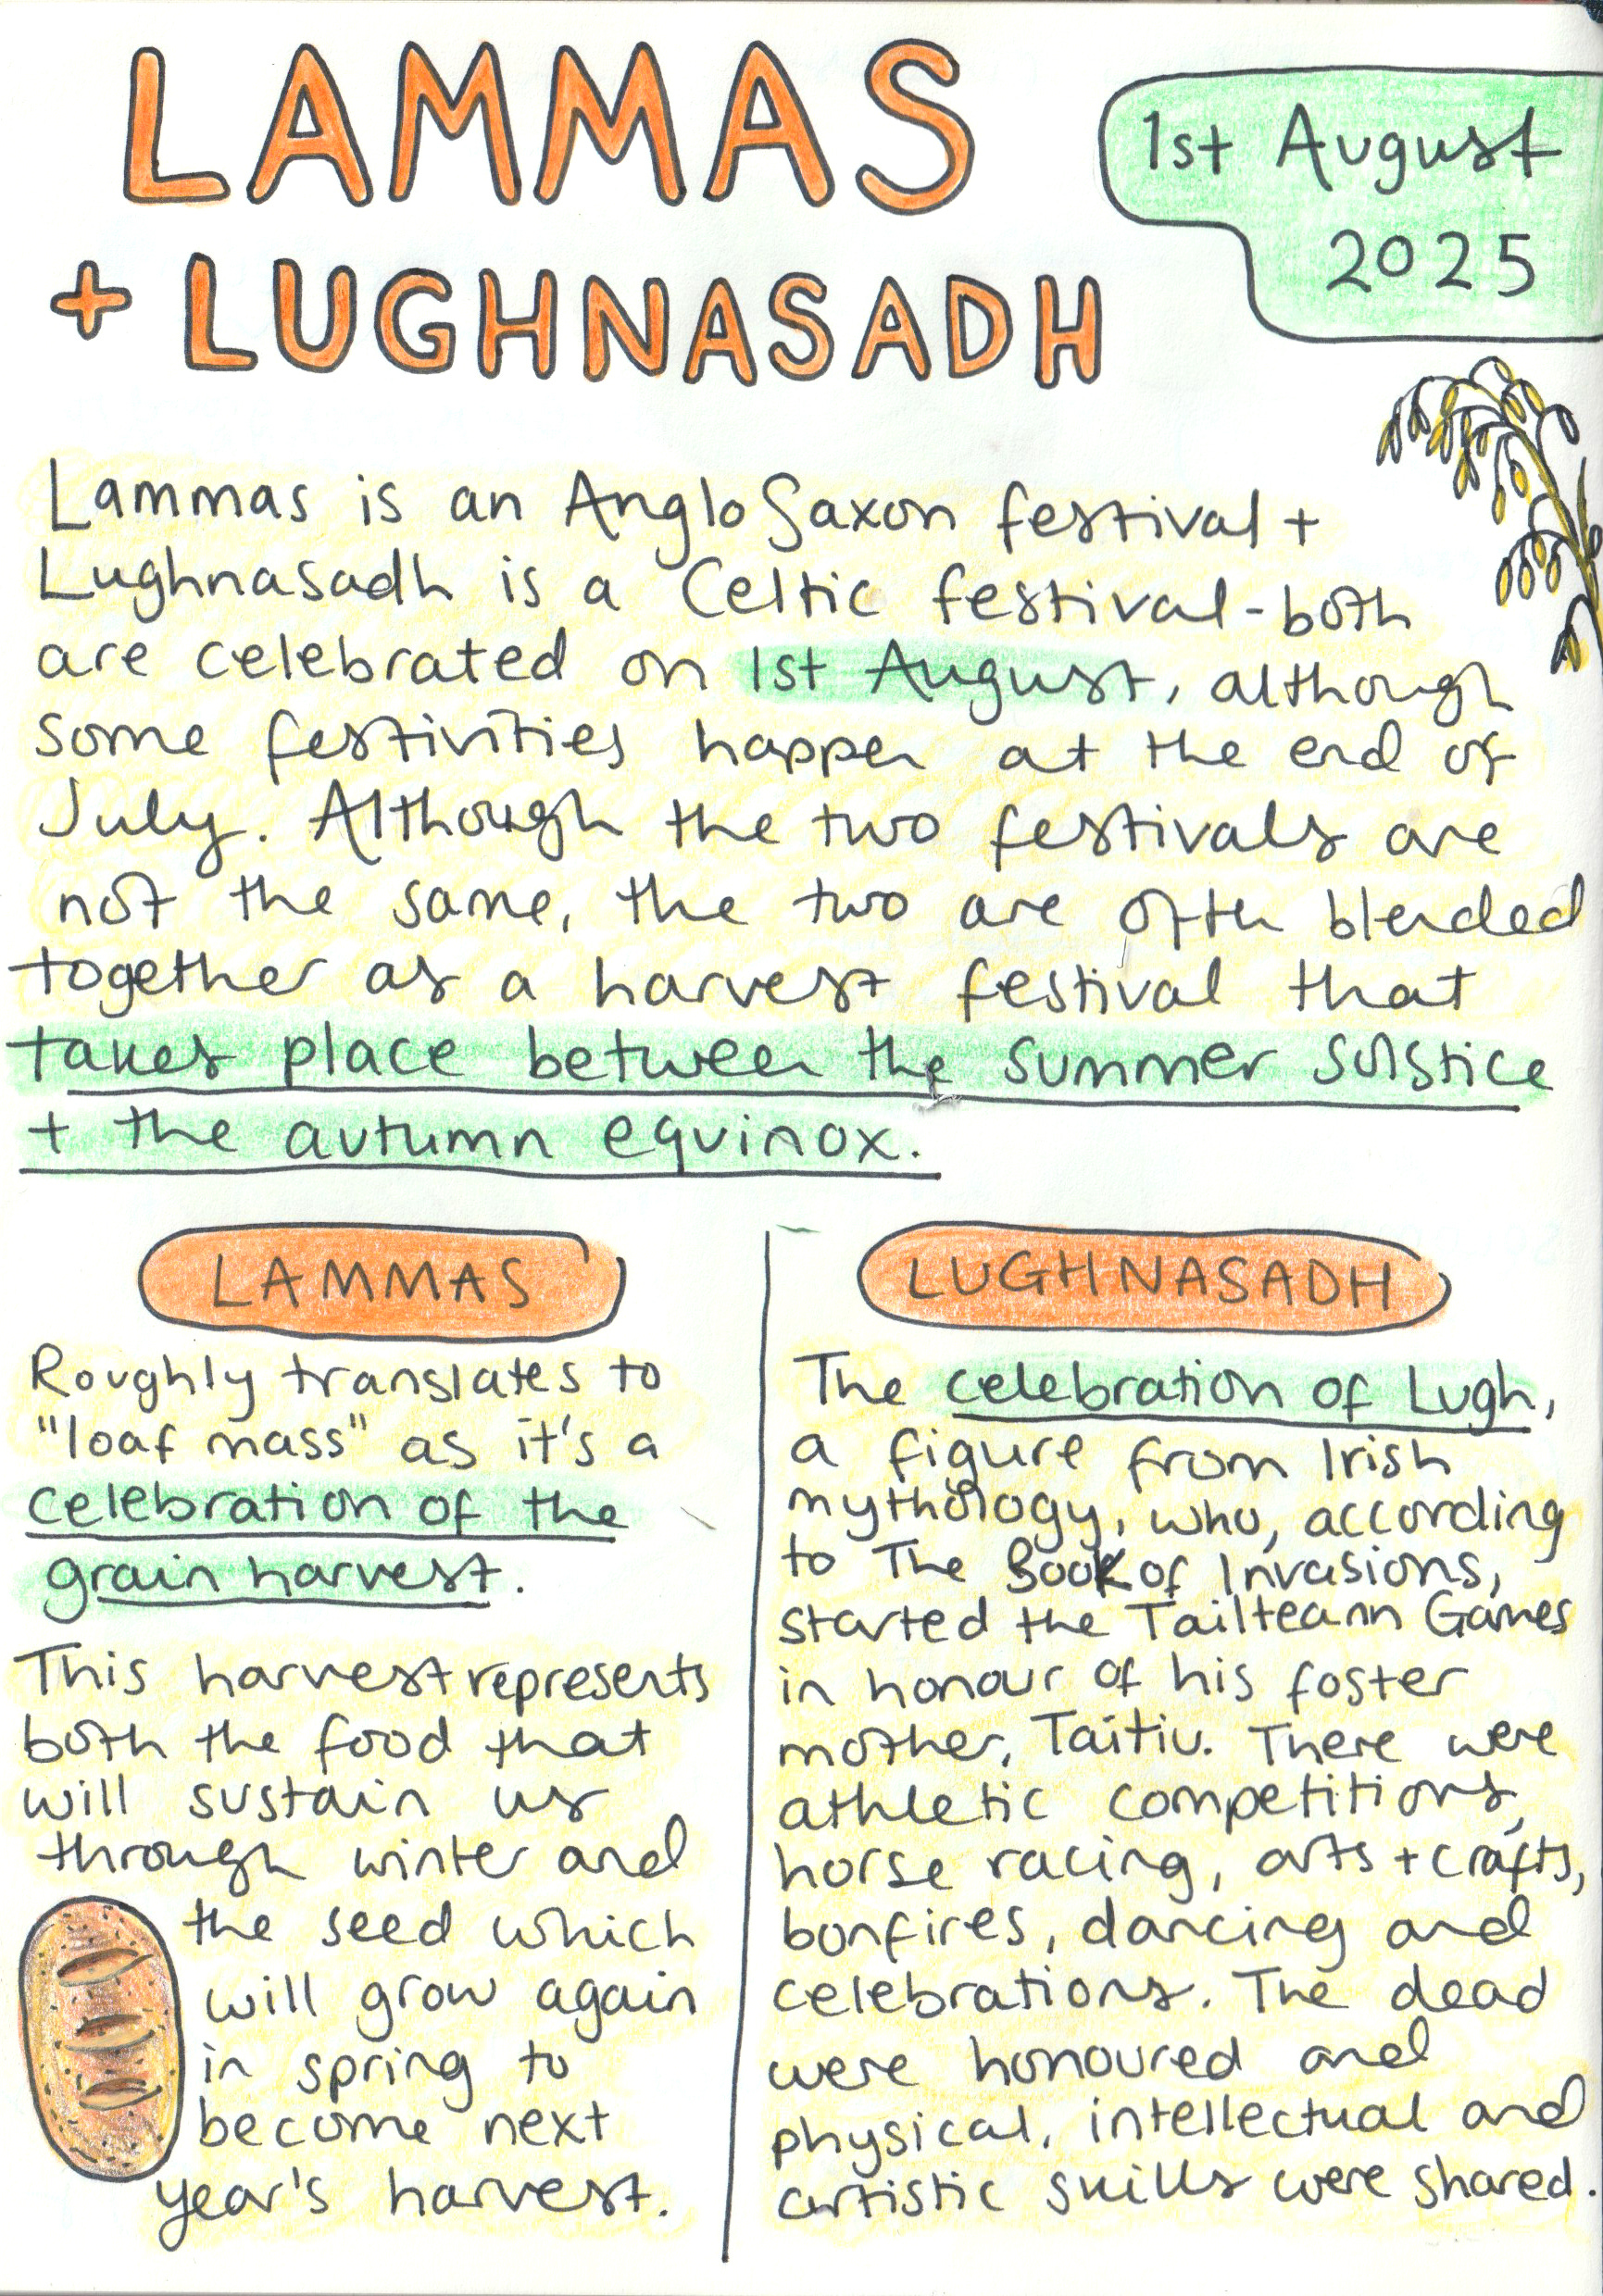 LAMMAS
+ LUGHNASADH
1st August
2025
Lammas is an Anglo Saxon festival +
Lughnasadh is a Celtic festival - both
are celebrated on 1st August, although
some festivities happen at the end of
July. Although the two festivals are
not the same, the two are often blended
together as a harvest festival that
takes place between the summer solstice
+ the autumn equinox.
LAMMAS
Roughly translates to
"loaf mass" as it's a
celebration of the
grain harvest.
This harvest represents
both the food that
will sustain us
through winter and
the seed which
will grow again
in spring to
become next
year's harvest.
LUGHNASADH
The celebration of Lugh,
a figure from Irish
mythology, who, according
to The Book of Invasions,
started the Tailteann Games
in honour of his foster
mother, Taitiu. There were
athletic competitions,
horse racing, arts + crafts,
bonfires, dancing and
celebrations. The dead
were honoured and
physical, intellectual and
artistic skills were shared.